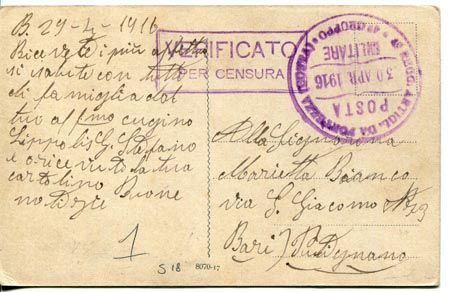 B. 29-4-1916
Ricevete i più affettuo
si saluti con tutti
di famiglia dal
tuo aff.mo cugino
Lippolis G. Stefano
e o ricevuto la tua
cartolina Buone
notizie
1
VERIFICATO
PER CENSURA
POSTA MILITARE
30 APR. 1916
REGG. ARTIGL. DA FORTEZZA
GRUPPO
Alla Signorina
Marietta Bianco
via S. Giacomo N 29
Bari) Putignano
S 18
8070-17